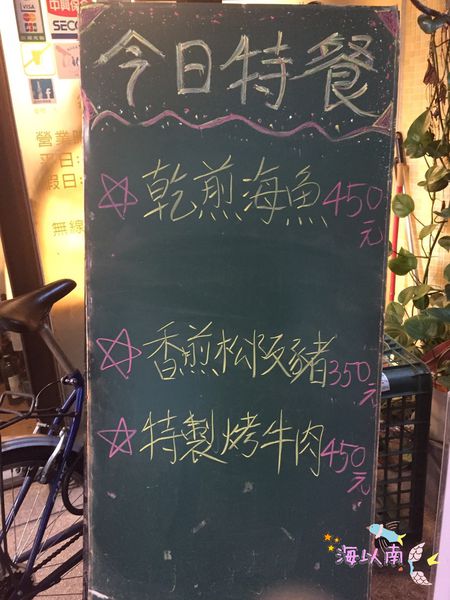 VISA
中興保
SECO
營業時
平日:
假日:
無線
今日特餐
☆乾煎海魚450元
☆香煎松阪豬350元
☆特製烤牛肉450元
海以南